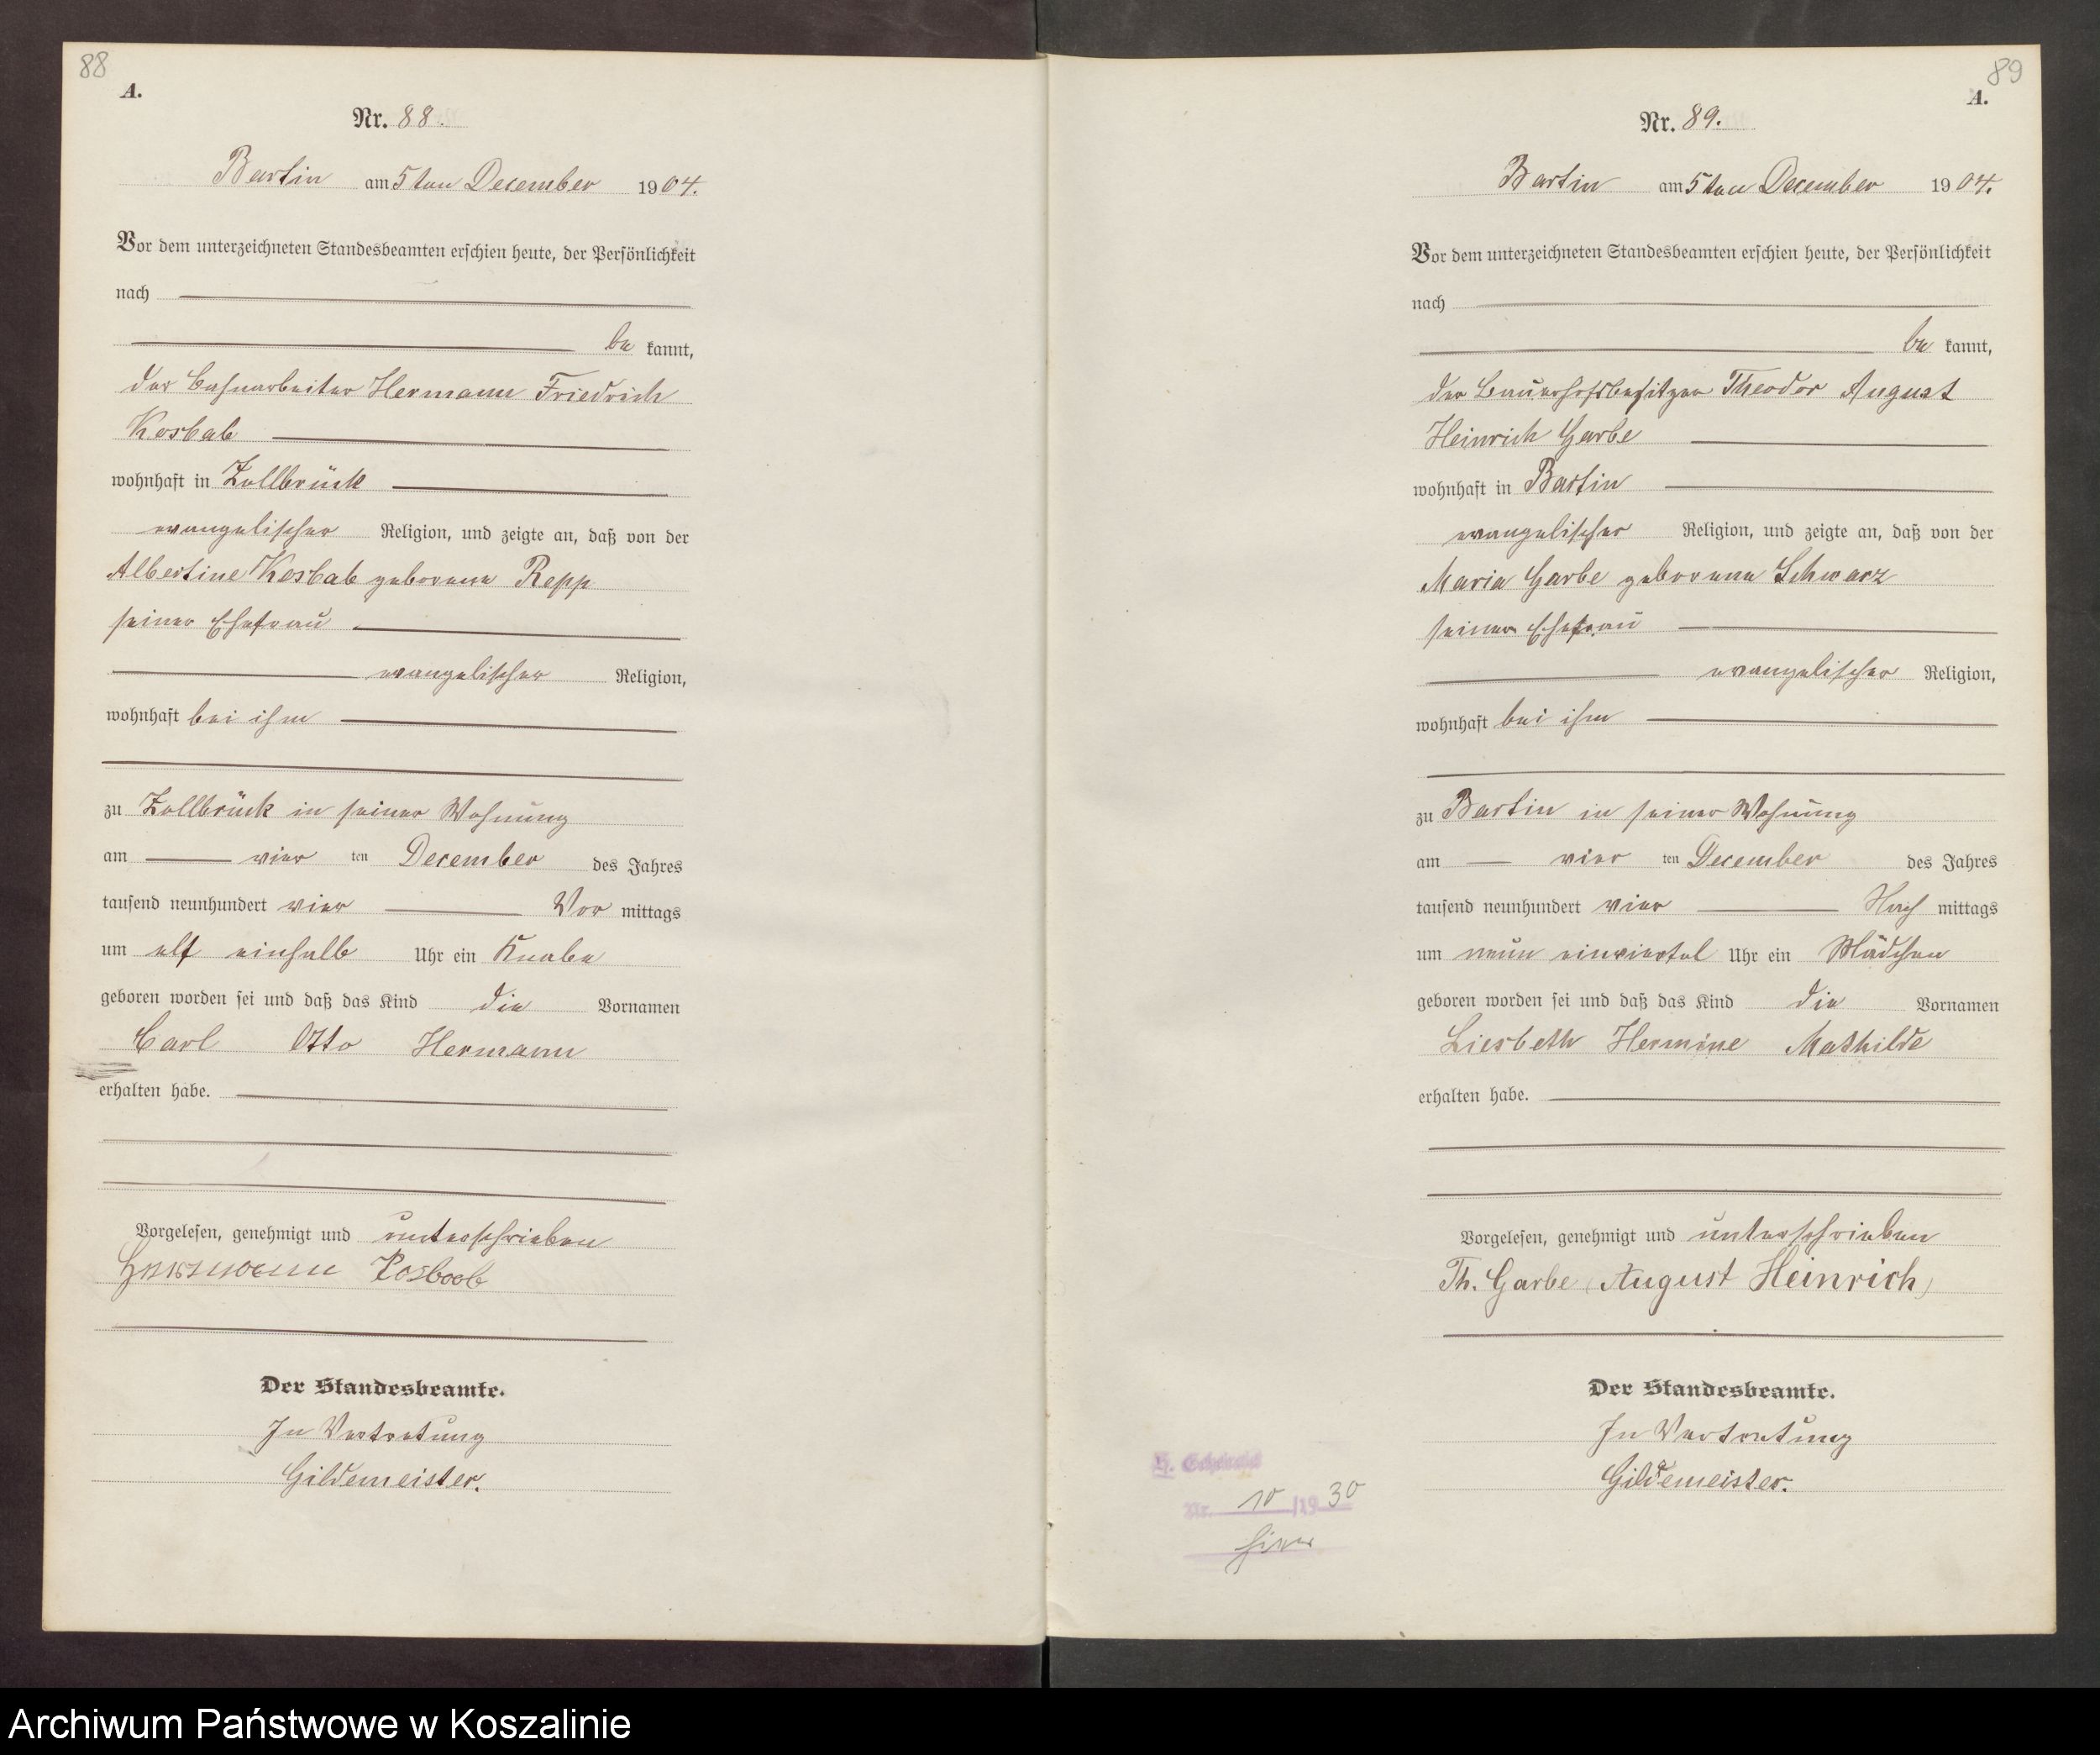 88
A.
Nr. 88.
Bartin am 5ten December 1904.
Vor dem unterzeichneten Standesbeamten erschien heute, der Persönlichkeit
nach
be kannt,
der Bahnarbeiter Hermann Friedrich
Kosbab
wohnhaft in Zollbrück
evangelischer Religion, und zeigte an, daß von der
Albertine Kosbab geborene Repp
seiner Ehefrau
evangelischer Religion,
wohnhaft bei ihm
zu Zollbrück in seiner Wohnung
am vier ten December des Jahres
tausend neunhundert vier Vor mittags
um elf einhalb Uhr ein Knabe
geboren worden sei und daß das Kind die Vornamen
Carl Otto Hermann
erhalten habe.
Vorgelesen, genehmigt und unterschrieben
Hermann Kosbab
Der Standesbeamte.
In Vertretung
Gildemeister.
89
A.
Nr. 89.
Bartin am 5ten December 1904.
Vor dem unterzeichneten Standesbeamten erschien heute, der Persönlichkeit
nach
be kannt,
der Bauerhofsbesitzer Theodor August
Heinrich Garbe
wohnhaft in Bartin
evangelischer Religion, und zeigte an, daß von der
Maria Garbe geborene Schwarz
seiner Ehefrau
evangelischer Religion,
wohnhaft bei ihm
zu Bartin in seiner Wohnung
am vier ten December des Jahres
tausend neunhundert vier Nach mittags
um neun einviertel Uhr ein Mädchen
geboren worden sei und daß das Kind die Vornamen
Liesbeth Hermine Mathilde
erhalten habe.
Vorgelesen, genehmigt und unterschrieben
Th. Garbe (August Heinrich)
Der Standesbeamte.
In Vertretung
Gildemeister.
Nr. 10/1930
Archiwum Państwowe w Koszalinie